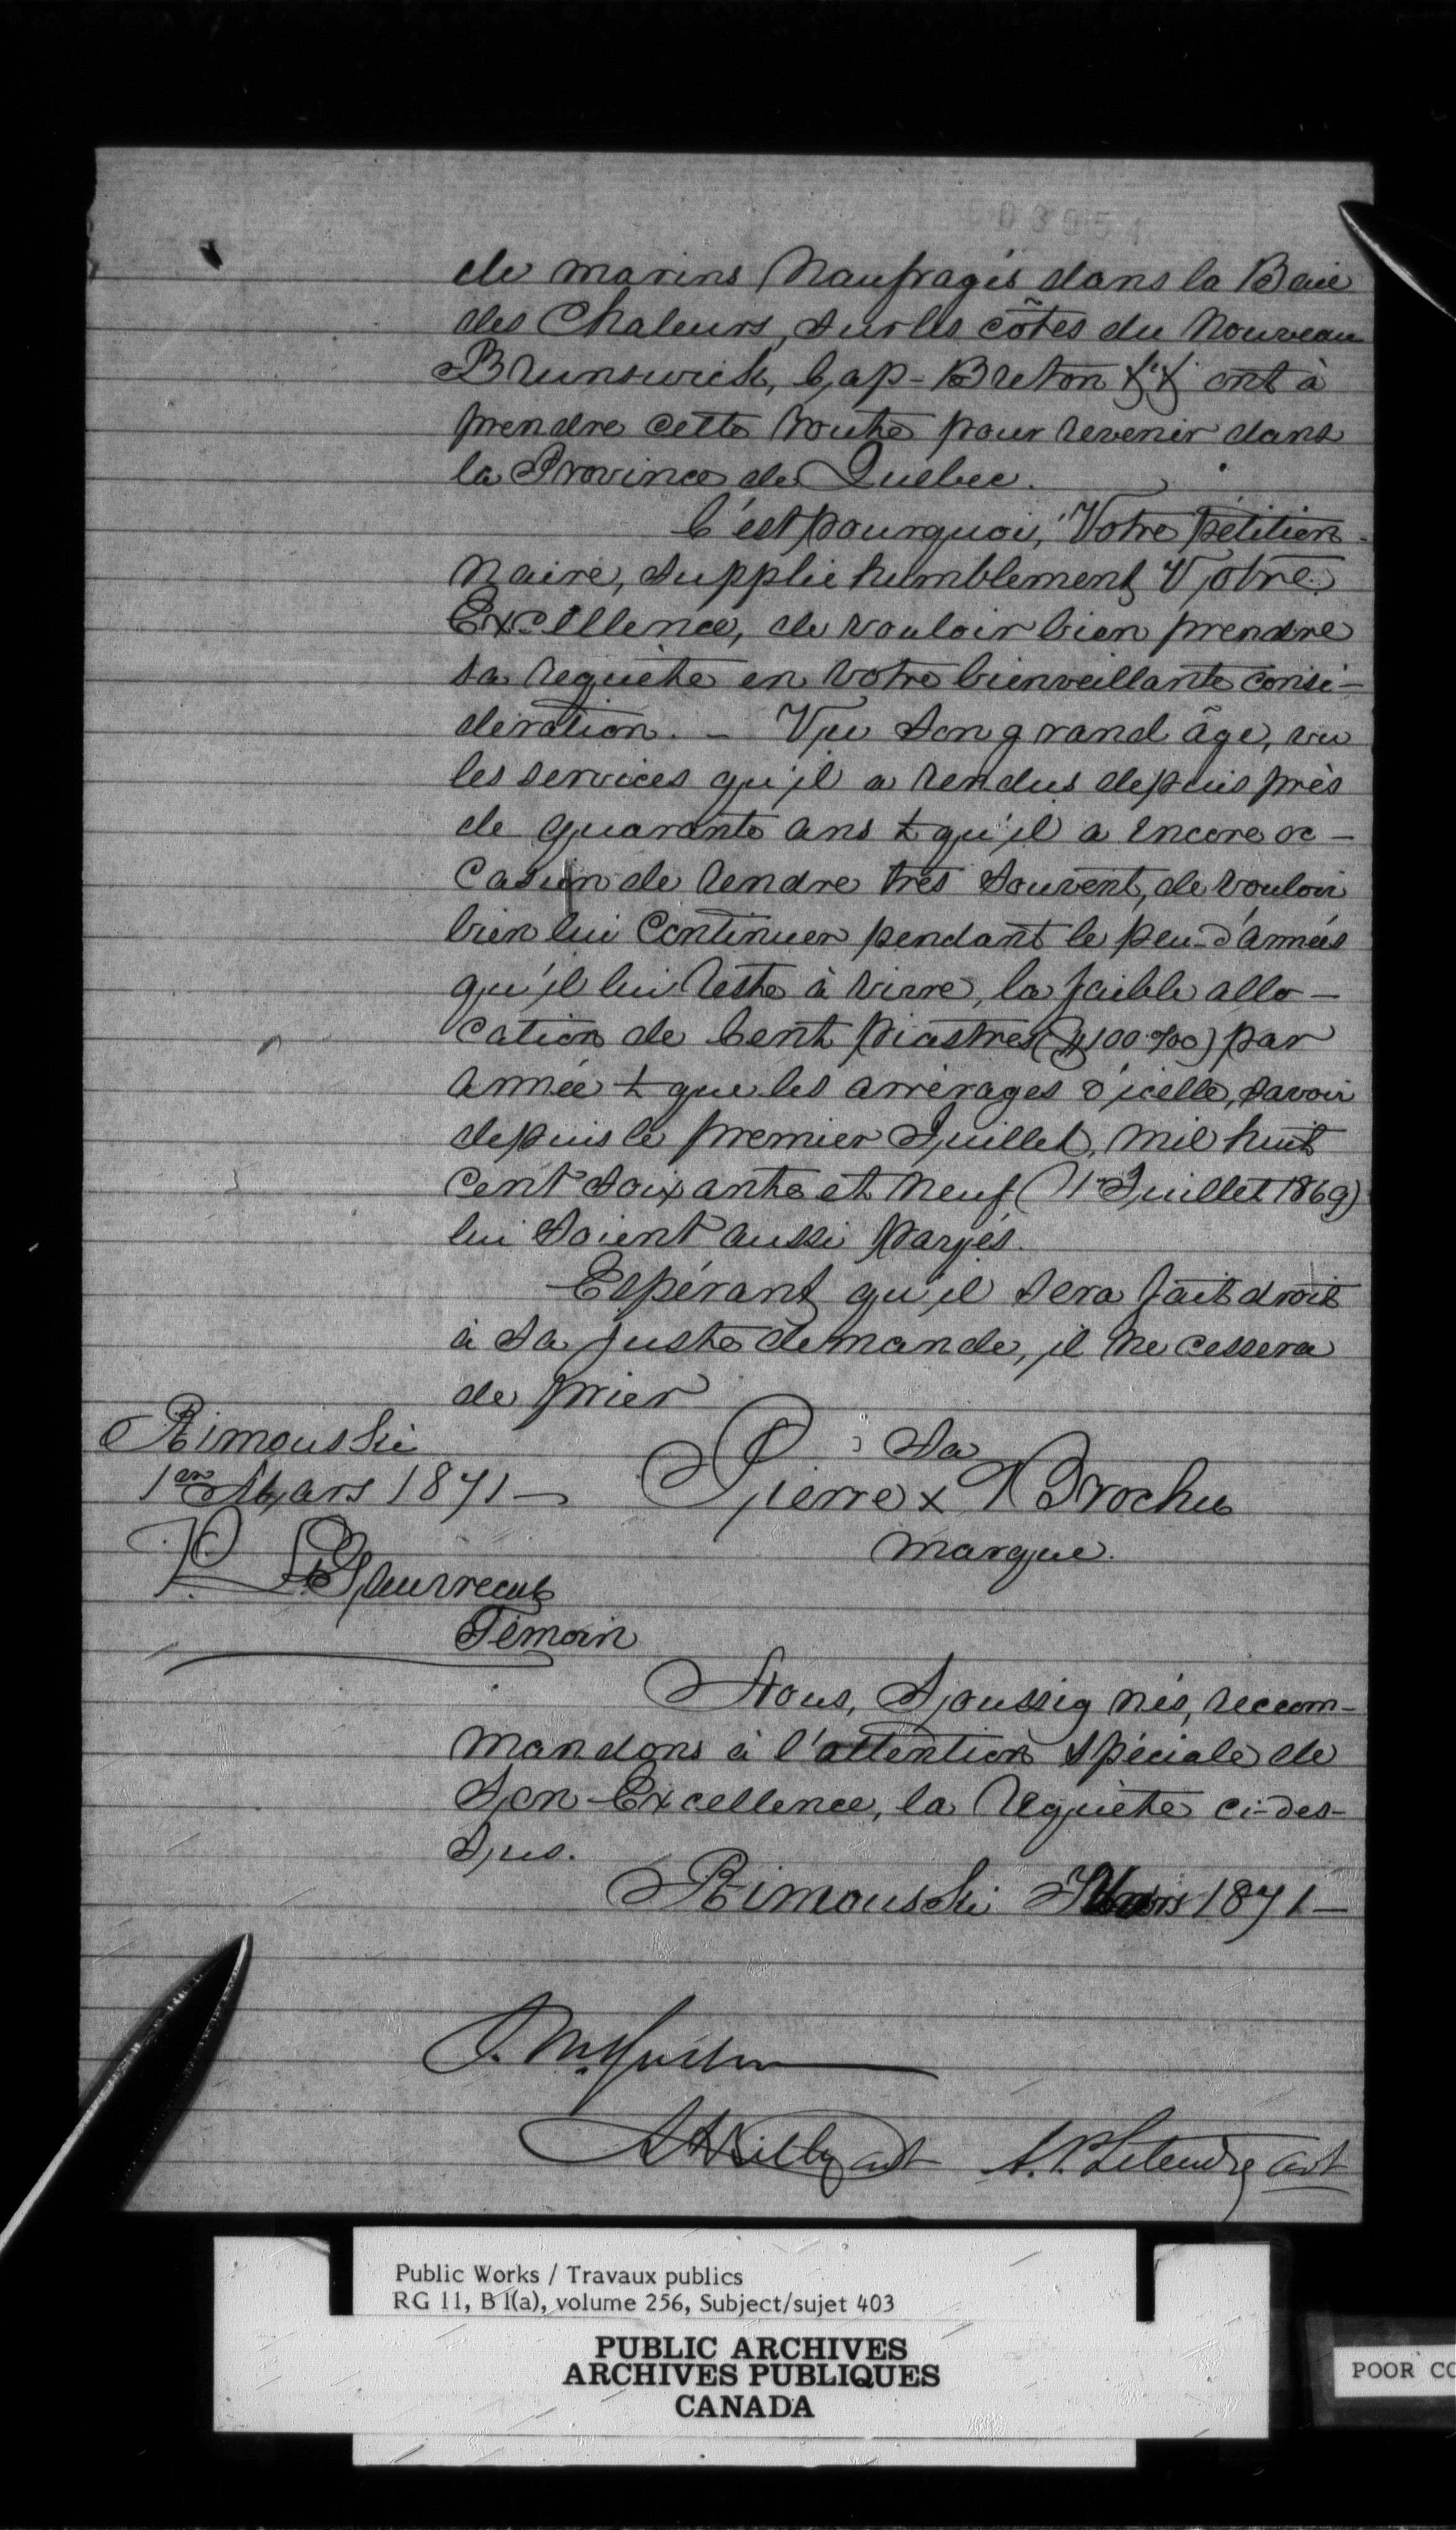 003051
de marins Naufragés dans la Baie
des Chaleurs, sur les côtes du Nouveau
Brunswick, Cap-Breton &c& ont à
prendre cette route pour revenir dans
la Province de Quebec.
C'est pourquoi, Votre pétition-
naire, supplie humblement Votre
Excellence, de vouloir bien prendre
sa requête en votre bienveillante consi-
dération. - Vu son grand âge, vu
les services qu'il a rendus depuis près
de quarante ans & qu'il a encore oc-
casion de rendre très souvent, de vouloir
bien lui continuer pendant le peu d'années
qu'il lui reste à vivre, la faible allo-
cation de Cent piastres ($100.%00) par
année & que les arrérages d'icelle, savoir
depuis le premier Juillet, mil huit
cent soixante et neuf (1er Juillet 1869)
lui soient aussi payés.
Espérant qu'il sera fait droit
à sa juste demande, il ne cessera
de prier
Rimouski
1er Mars 1871 -
sa
Pierre x Brochu
marque.
P. L.
Témoin
Nous, Soussignés, recom-
mandons à l'attention spéciale de
Son Excellence, la requête ci-des-
sus.
Rimouski Mars 1871 -
A. P. Letendre
Public Works / Travaux publics
RG 11, B 1(a), volume 256, Subject/sujet 403
PUBLIC ARCHIVES
ARCHIVES PUBLIQUES
CANADA
POOR CO